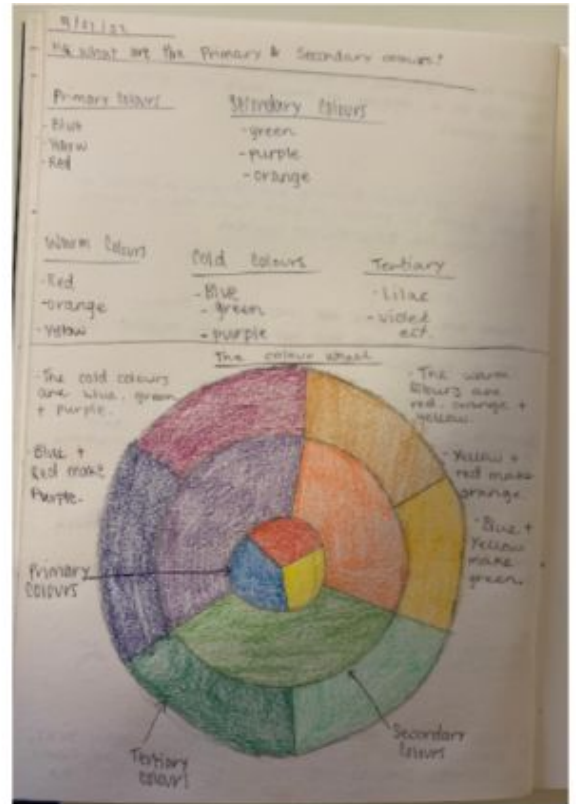 What are the Primary & Secondary colours?
Primary Colours
- Blue
- Yellow
- Red
Secondary Colours
- green
- purple
- orange
Warm Colours
- Red
- orange
- Yellow
Cold Colours
- Blue
- green
- purple
Tertiary
- Lilac
- violet
ect.
The colour wheel
- The cold colours
are blue, green
+ purple.
- Blue +
Red make
Purple.
Primary
Colours
- The warm
colours are
red, orange +
yellow.
- Yellow +
red make
orange.
- Blue +
Yellow
make
green.
Tertiary
colours
Secondary
Colours